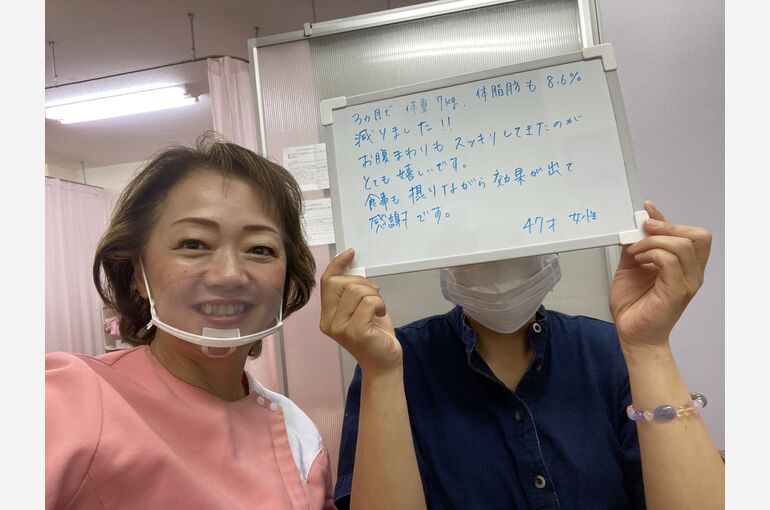 3ヵ月で 体重 7kg、体脂肪も 8.6%
減りました!!
お腹まわりも スッキリしてきたのが
とても 嬉しいです。
食事も 摂りながら 効果が出て
感謝です。
47才 女性